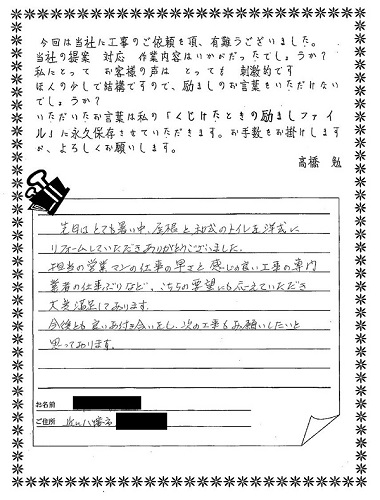 今回は当社に工事のご依頼を頂、有難うございました。
当社の提案 対応 作業内容はいかがだったでしょうか？
私にとって お客様の声は とっても 刺激的です
ほんの少しで結構ですので、励ましのお言葉をいただけない
でしょうか？
いただいたお言葉は私の「くじけたときの励ましファイ
ル」に永久保存させていただきます。お手数をお掛けします
が、よろしくお願いします。
高橋 勉
先日はとても暑い中、屋根と和式のトイレを洋式に
リフォームしていただきありがとうございました。
担当の営業マンの仕事の早さと感じの良い工事の専門
業者の仕事ぶりなど、こちらの要望にも応えていただき
大変満足しております。
今後とも良いお付き合いをし、次の工事もお願いしたいと
思っております。
お名前
ご住所 近江八幡市